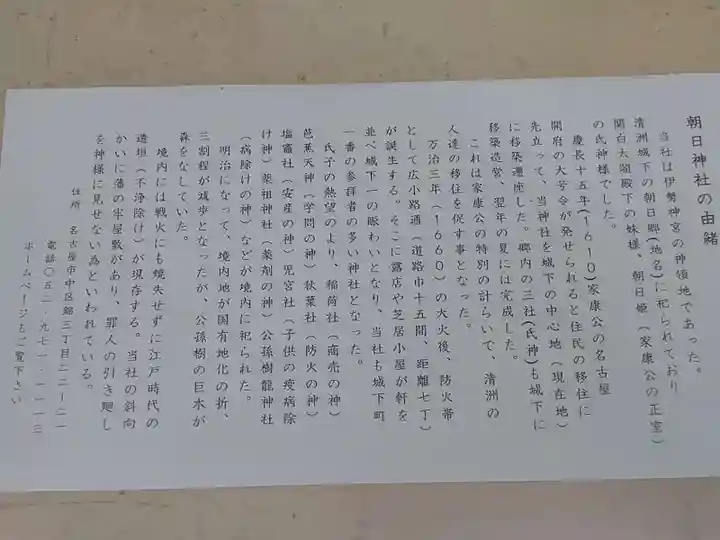 朝日神社の由緒
当社は伊勢神宮の神領地であった。
清洲城下の朝日郷(地名)に祀られており
関白太閤殿下の妹様、朝日姫(家康公の正室)
の氏神様でした。
慶長十五年(1610)家康公の名古屋
開府の大号令が発せられると住民の移住に
先立って、当神社を城下の中心地(現在地)
に移築遷座した。郷内の三社(氏神)も城下に
移築造営、翌年の夏には完成した。
これは家康公の特別の計らいで、清洲の
人達の移住を促す事となった。
万治三年(1660)の大火後、防火帯
として広小路通(道路巾十五間、距離七丁)
が誕生する。そこに露店や芝居小屋が軒を
並べ城下一の賑わいとなり、当社も城下町
一番の参拝者の多い神社となった。
氏子の熱望のより、稲荷社(商売の神)
芭蕉天神(学問の神)秋葉社(防火の神)
塩竈社(安産の神)児宮社(子供の疫病除
け神)薬祖神社(薬剤の神)公孫樹龍神社
(病除けの神)などが境内に祀られた。
明治になって、境内地が国有地化の折、
三割程が減歩となったが、公孫樹の巨木が
森をなしていた。
境内には戦火にも焼失せずに江戸時代の
透垣(不浄除け)が現存する。当社の斜向
かいに藩の牢屋敷があり、罪人の引き廻し
を神様に見せない為といわれている。
住所 名古屋市中区錦三丁目二二-二一
電話〇五二-九七一-一一一三
ホームページもご覧下さい